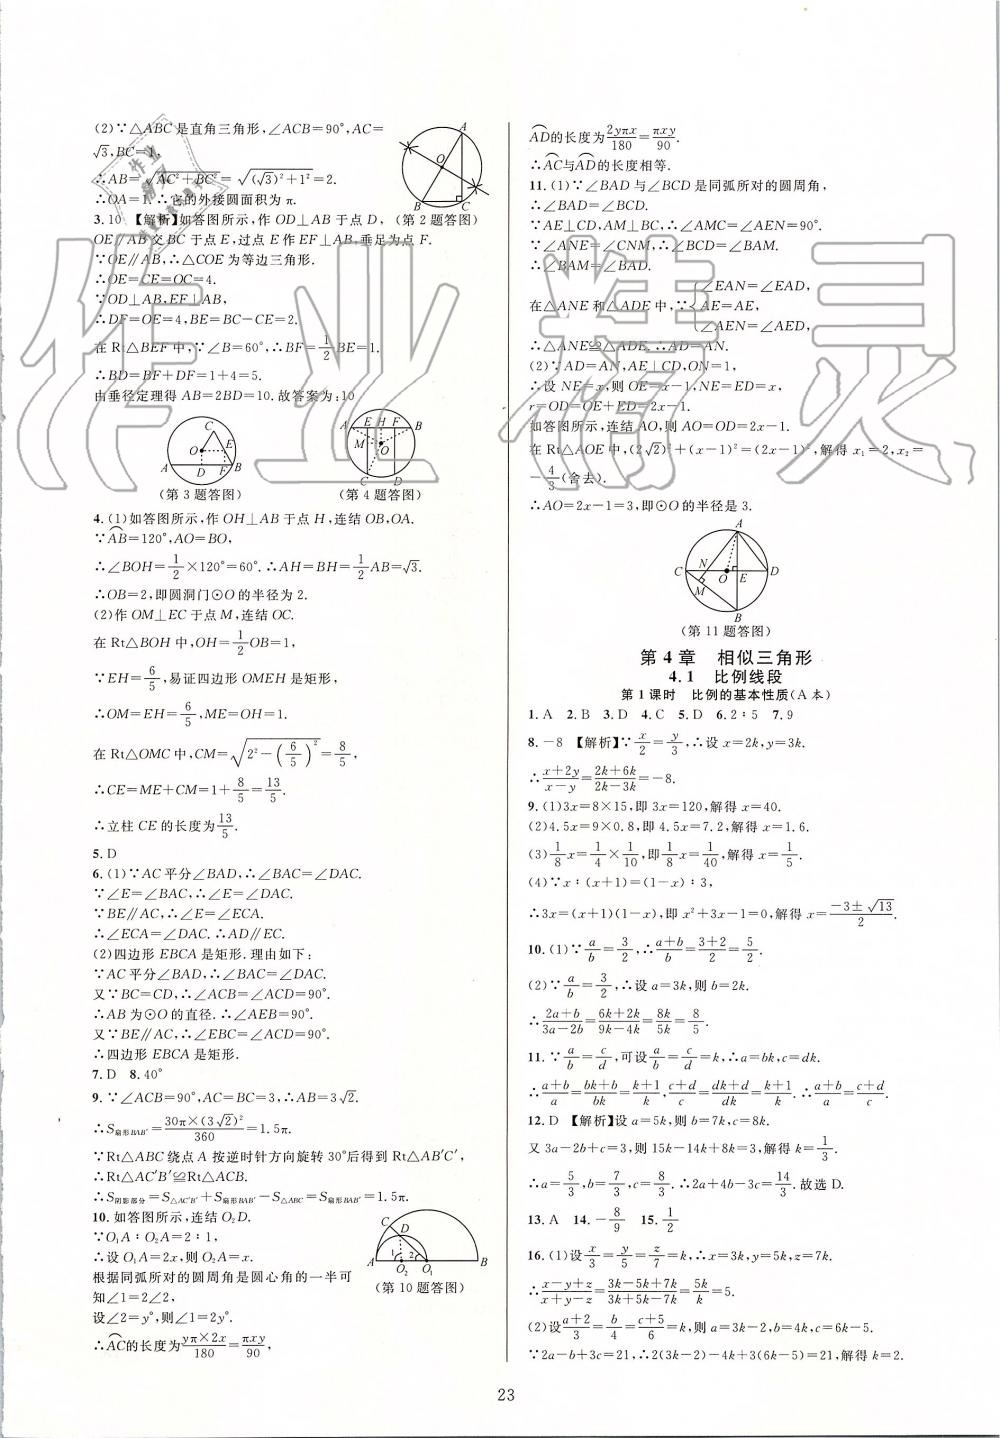 (2)∵△ABC是直角三角形,∠ACB=90°,AC=
√3,BC=1,
∴AB=√(AC²+BC²)=√((√3)²+1²)=2.
∴OA=1.∴它的外接圆面积为π.
(第2题答图)
3.10 【解析】如答图所示,作OD⊥AB于点D,
OE∥AB交BC于点E,过点E作EF⊥AB,垂足为点F.
∵OE∥AB,∴△COE为等边三角形.
∴OE=CE=OC=4.
∵OD⊥AB,EF⊥AB,
∴DF=OE=4,BE=BC-CE=2.
在Rt△BEF中,∵∠B=60°,∴BF=1/2BE=1.
∴BD=BF+DF=1+4=5.
由垂径定理得AB=2BD=10.故答案为:10
(第3题答图) (第4题答图)
4.(1)如答图所示,作OH⊥AB于点H,连结OB,OA.
∵⌒AB=120°,AO=BO,
∴∠BOH=1/2×120°=60°.∴AH=BH=1/2AB=√3.
∴OB=2,即圆洞门⊙O的半径为2.
(2)作OM⊥EC于点M,连结OC.
在Rt△BOH中,OH=1/2OB=1,
∵EH=6/5,易证四边形OMEH是矩形,
∴OM=EH=6/5,ME=OH=1.
在Rt△OMC中,CM=√(2²-(6/5)²)=8/5,
∴CE=ME+CM=1+8/5=13/5.
∴立柱CE的长度为13/5.
5.D
6.(1)∵AC平分∠BAD,∴∠BAC=∠DAC.
∵∠E=∠BAC,∴∠E=∠DAC.
∵BE∥AC,∴∠E=∠ECA.
∴∠ECA=∠DAC.∴AD∥EC.
(2)四边形EBCA是矩形.理由如下:
∵AC平分∠BAD,∴∠BAC=∠DAC.
又∵BC=CD,∴∠ACB=∠ACD=90°.
∴AB为⊙O的直径.∴∠AEB=90°.
又∵BE∥AC,∴∠EBC=∠ACD=90°.
∴四边形EBCA是矩形.
7.D 8.40°
9.∵∠ACB=90°,AC=BC=3,∴AB=3√2.
∴S扇形BAB′=30π×(3√2)²/360=1.5π.
∵Rt△ABC绕点A按逆时针方向旋转30°后得到Rt△AB′C′,
∴Rt△AC′B′≌Rt△ACB.
∴S阴影部分=S△AC′B′+S扇形BAB′-S△ABC=S扇形BAB′=1.5π.
10.如答图所示,连结O₂D.
∵O₁A∶O₂A=2∶1,
∴设O₁A=2x,则O₂A=x.
根据同弧所对的圆周角是圆心角的一半可
知∠1=2∠2,
(第10题答图)
设∠2=y°,则∠1=2y°.
∴⌒AC的长度为yπ×2x/180=πxy/90,
⌒AD的长度为2yπx/180=πxy/90.
∴⌒AC与⌒AD的长度相等.
11.(1)∵∠BAD与∠BCD是同弧所对的圆周角,
∴∠BAD=∠BCD.
∵AE⊥CD,AM⊥BC,∴∠AMC=∠AEN=90°.
∵∠ANE=∠CNM,∴∠BCD=∠BAM.
∴∠BAM=∠BAD.
在△ANE和△ADE中,∵{∠EAN=∠EAD,
AE=AE,
∠AEN=∠AED,
∴△ANE≌△ADE.∴AD=AN.
(2)∵AD=AN,AE⊥CD,∴NE=ED.
∴设NE=x,则OE=x-1,NE=ED=x,
r=OD=OE+ED=2x-1.
如答图所示,连结AO,则AO=OD=2x-1.
在Rt△AOE中,(2√2)²+(x-1)²=(2x-1)²,解得x₁=2,x₂=
-4/3(舍去).
∴AO=2x-1=3,即⊙O的半径是3.
(第11题答图)
第4章 相似三角形
4.1 比例线段
第1课时 比例的基本性质(A本)
1.A 2.B 3.D 4.C 5.D 6.2∶5 7.9
8.-8 【解析】∵x/2=y/3,∴设x=2k,y=3k.
∴(x+2y)/(x-y)=(2k+6k)/(2k-3k)=-8.
9.(1)3x=8×15,即3x=120,解得x=40.
(2)4.5x=9×0.8,即4.5x=7.2,解得x=1.6.
(3)1/8x=1/4×1/10,即1/8x=1/40,解得x=1/5.
(4)∵x∶(x+1)=(1-x)∶3,
∴3x=(x+1)(1-x),即x²+3x-1=0,解得x=(-3±√13)/2.
10.(1)∵a/b=3/2,∴(a+b)/b=(3+2)/2=5/2.
(2)∵a/b=3/2,∴设a=3k,则b=2k.
∴(2a+b)/(3a-2b)=(6k+2k)/(9k-4k)=8k/5k=8/5.
11.∵a/b=c/d,可设a/b=c/d=k,∴a=bk,c=dk.
∴(a+b)/a=(bk+b)/bk=(k+1)/k,(c+d)/c=(dk+d)/dk=(k+1)/k.∴(a+b)/a=(c+d)/c.
12.D 【解析】设a=5k,则b=7k,c=8k,
又3a-2b+c=3,则15k-14k+8k=3,解得k=1/3.
∴a=5/3,b=7/3,c=8/3.∴2a+4b-3c=14/3.故选D.
13.A 14.-8/9 15.1/2
16.(1)设x/3=y/5=z/7=k,∴x=3k,y=5k,z=7k.
∴(x-y+z)/(x+y-z)=(3k-5k+7k)/(3k+5k-7k)=5k/k=5.
(2)设(a+2)/3=b/4=(c+5)/6=k,则a=3k-2,b=4k,c=6k-5.
∵2a-b+3c=21,∴2(3k-2)-4k+3(6k-5)=21,解得k=2.
23
作业精灵